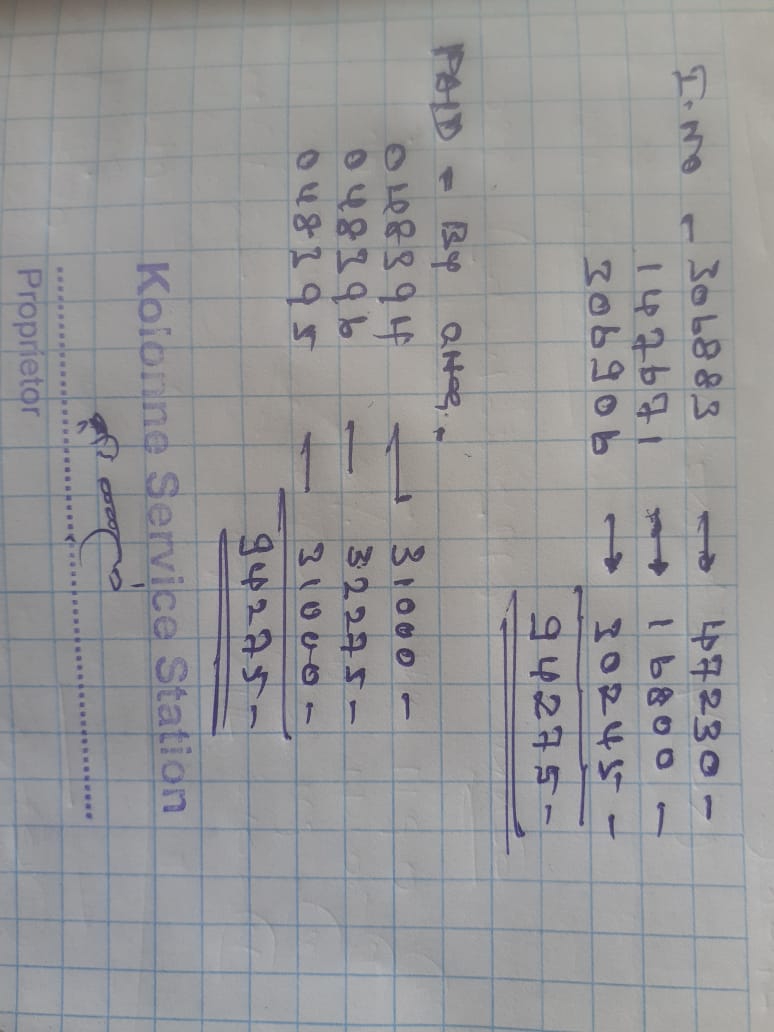 I.No - 306883 → 47230 -
147671 → 16800 -
306906 → 30245 -
94275 -
PAID = By CHq.
048394 — 31000 -
048396 — 32275 -
048395 — 31000 -
94275 -
Kolonne Service Station
Proprietor